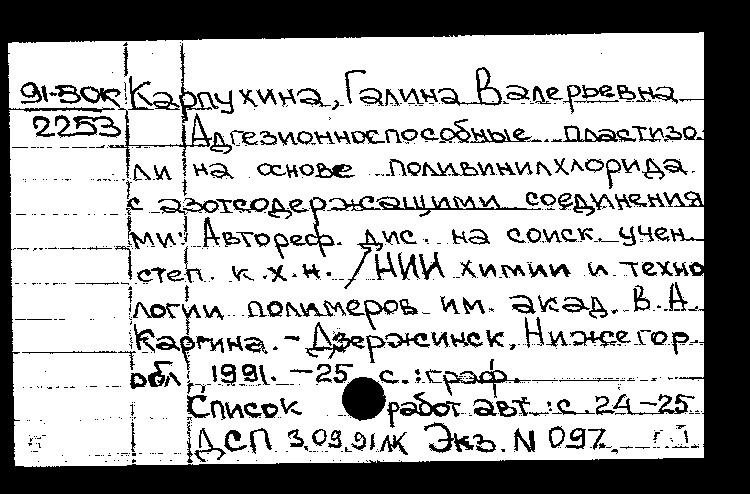 91-50К Карпухина, Галина Валерьевна
2253 Адгезионноспособные пластизо
ли на основе поливинилхлорида
с азотсодержащими соединения
ми: Автореф. дис. на соиск. учен.
степ. к.х.н. /НИИ химии и техно
логии полимеров им. акад. В.А.
Каргина. - Дзержинск, Нижегор.
обл 1991. - 25 с.: граф.
Список работ авт.: с. 24-25
ДСП 3.09.91 Экз. N 097.